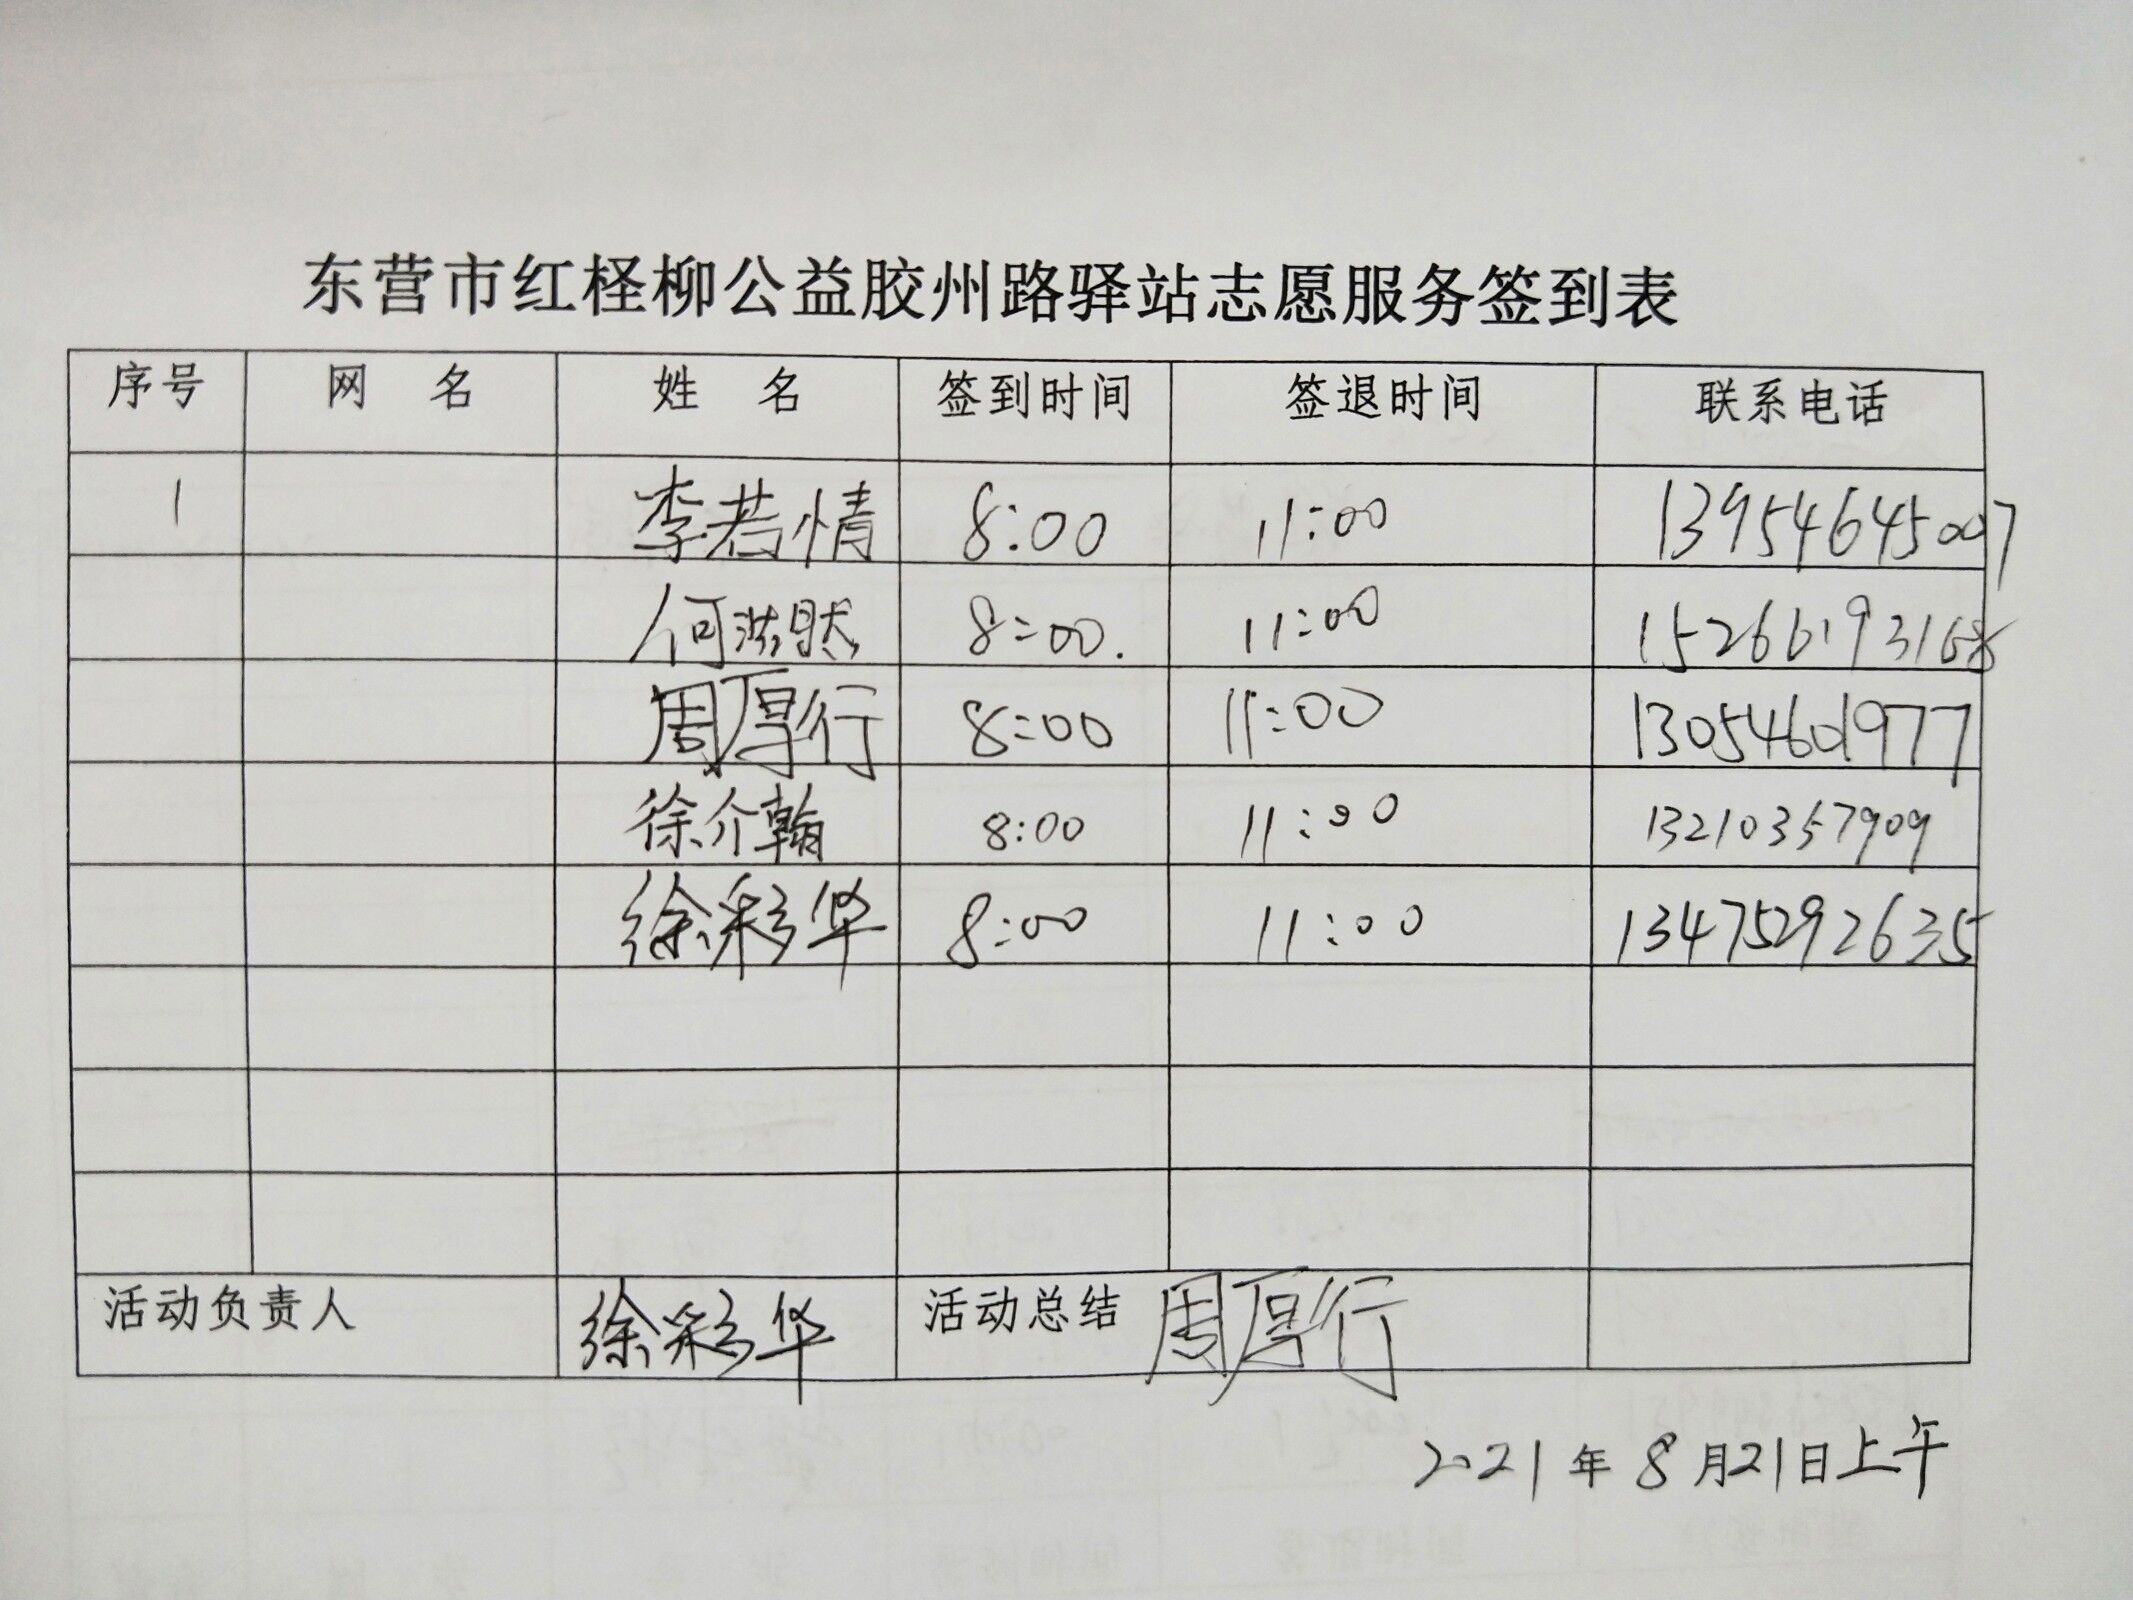 东营市红柽柳公益胶州路驿站志愿服务签到表
序号 网 名 姓 名 签到时间 签退时间 联系电话
1 李若情 8:00 11:00 13954645007
何浩然 8:00. 11:00 15266193168
周厚行 8:00 11:00 13054601977
徐介翰 8:00 11:00 13210357909
徐彩华 8:00 11:00 13475292635
活动负责人 徐彩华 活动总结 周厚行
2021年8月21日上午